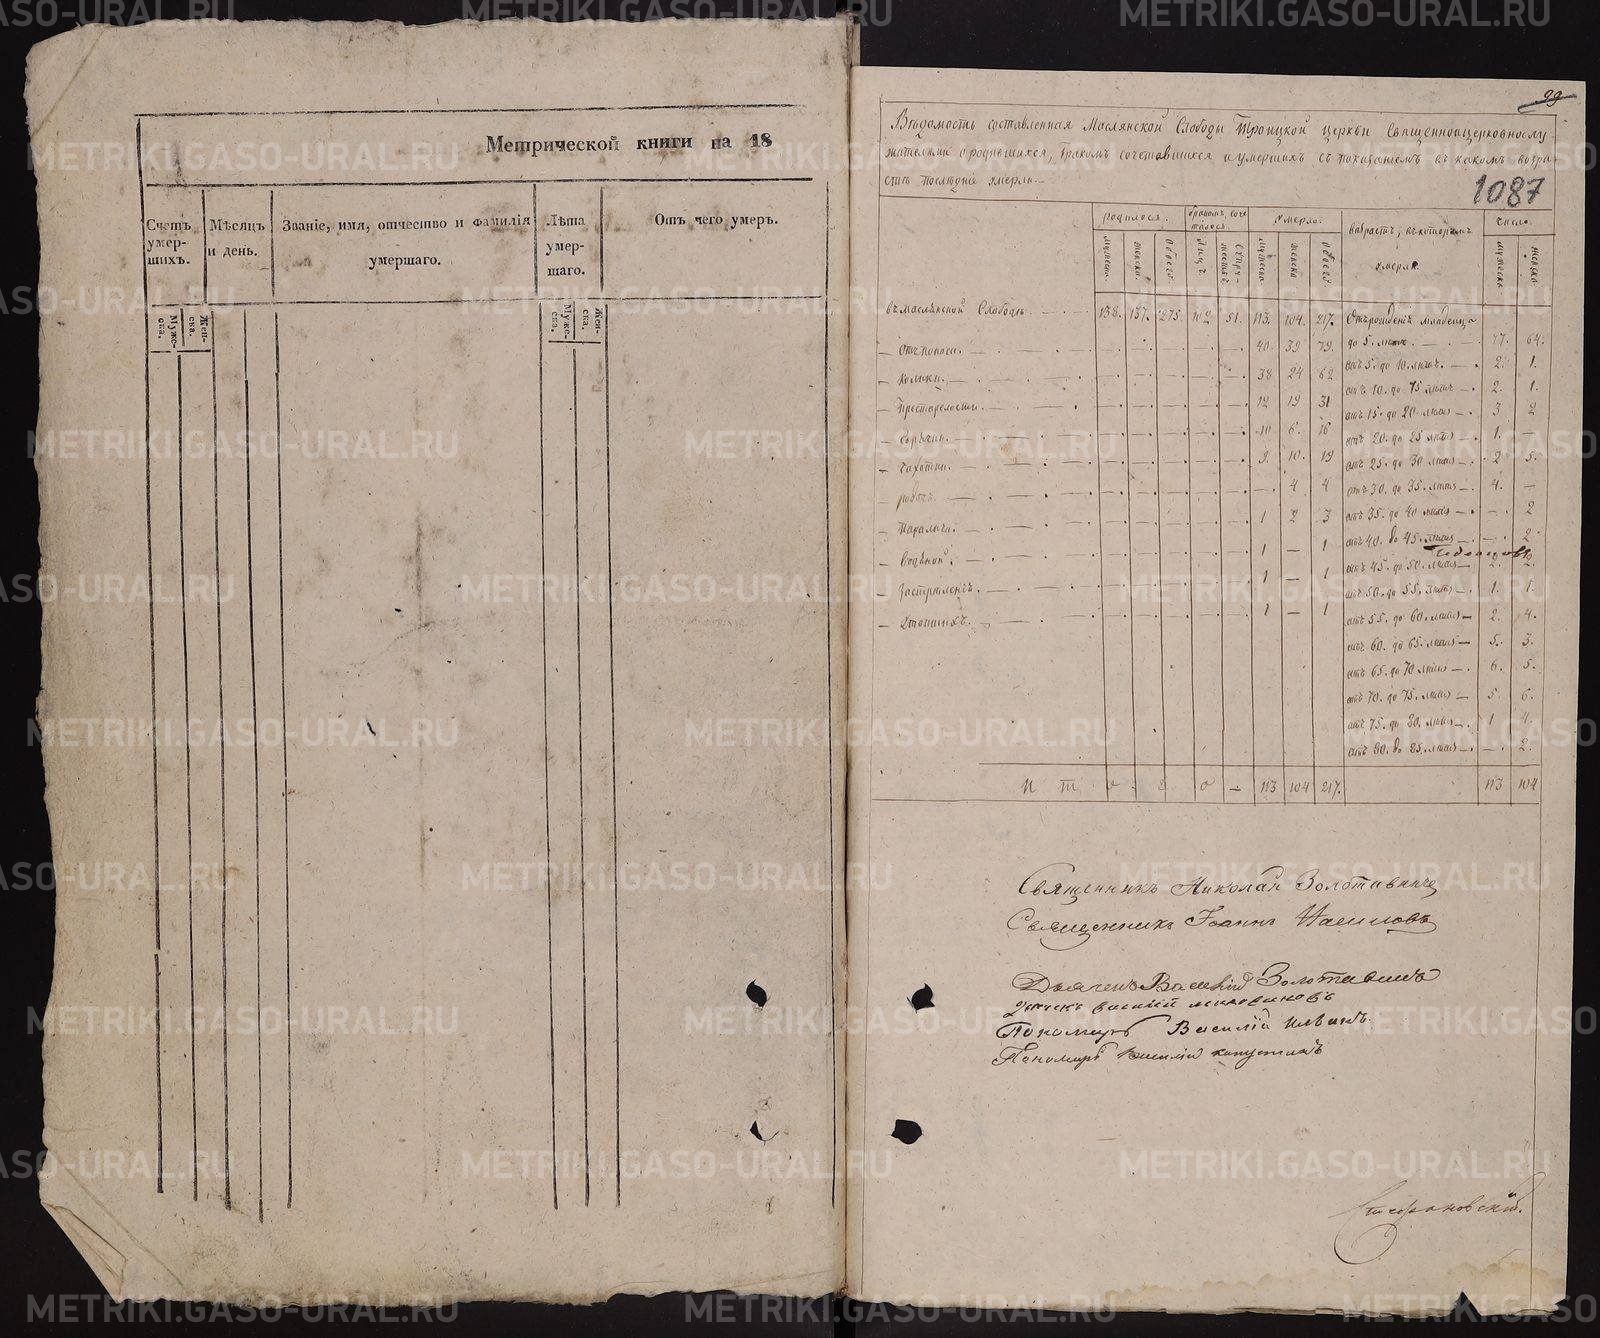 Метрической книги на 18
Счетъ умер-шихъ.
Муже-ска.
Жен-ска.
Мѣсяцъ и день.
Званіе, имя, отчество и фамилія умершаго.
Лѣта умер-шаго.
Муже-ска.
Жен-ска.
Отъ чего умеръ.
99
Вѣдомость составленная Маслянской Слободы Троицкой церкви Священноцерковнослу-
жителями о родившихся, бракомъ сочетавшихся и умершихъ съ показаніемъ въ какомъ возра-
стѣ послѣдніе умерли
1087
родилося. бракомъ соче-талося. умерло. возрастъ, въ которомъ умерли. число
мужеска. женска. обоего. лицъ. мужеска женска обоего мужеска. женска.
въ маслянской Слободѣ 138. 137. 275. 102. 51. 113. 104. 217. Отъ рожденія младенца
до 5. лѣтъ 77. 64.
— Отъ поноса. 40. 39 79.
отъ 5. до 10. лѣтъ 2. 1.
— Колики. 38 24 62
отъ 10. до 15 лѣтъ 2. 1.
— Престарелости. 12 19 31
отъ 15. до 20. лѣтъ 3 2
— Горячки. 10 6. 16
отъ 20. до 25 лѣтъ 1. —
— Чахотки. 9. 10. 19
отъ 25. до 30 лѣтъ 2 5.
— родовъ. 4 4
отъ 30. до 35. лѣтъ 4. —
— Паралича. 1 2 3
отъ 35. до 40 лѣтъ — 2
— Водяной. 1 — 1
отъ 40. до 45. лѣтъ — 2.
— Застрѣленъ. 1 — 1
отъ 45. до 50. лѣтъ 2. 2.
— Утопшихъ. 1 — 1
отъ 50. до 55. лѣтъ 1. 1.
отъ 55. до 60. лѣтъ 2. 4.
отъ 60. до 65. лѣтъ 5. 3.
отъ 65. до 70 лѣтъ 6. 5.
отъ 70. до 75. лѣтъ 5. 6.
отъ 75. до 80. лѣтъ 1 4.
отъ 80. до 85. лѣтъ — 2.
И т о г о — 113 104 217. 113 104
Священникъ Николай Золотавинъ
Священникъ Іоаннъ
Дьячекъ Василій Золотавинъ
Дьячекъ василій
Пономарь Василій
Пономарь Василій капустинъ
Стефановскій.
METRIKI.GASO-URAL.RU